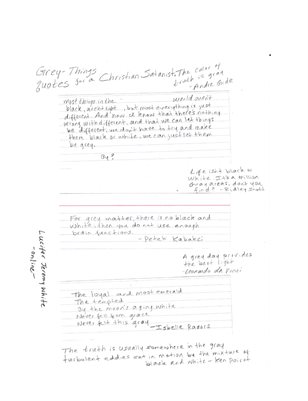 Grey-Things
Quotes for a Christian Satanist
The color of
truth is gray
-Andre Gide
Most things in the world aren't
black, aren't white, but most everything is just
different. And now I know that there's nothing
wrong with different, and that we can let things
be different, we don't have to try and make
them black or white, we can just let them
be grey.
Life isn't black or
white. It's a million
gray areas, don't you
find? - Ridley Scott
For grey matter, there is no black and
white, then you do not use enough
brain functions.
- Peter Kabakci
A grey day provides
the best light
- Leonardo da Vinci
Lucifer Jeremy White
-online-
The loyal and most emerald
The tempted
By the moon's aging white
Never fell from grace
Never felt this gray
The truth is usually somewhere in the gray
turbulent eddies set in motion by the mixture of
black and white - Ken Poirot